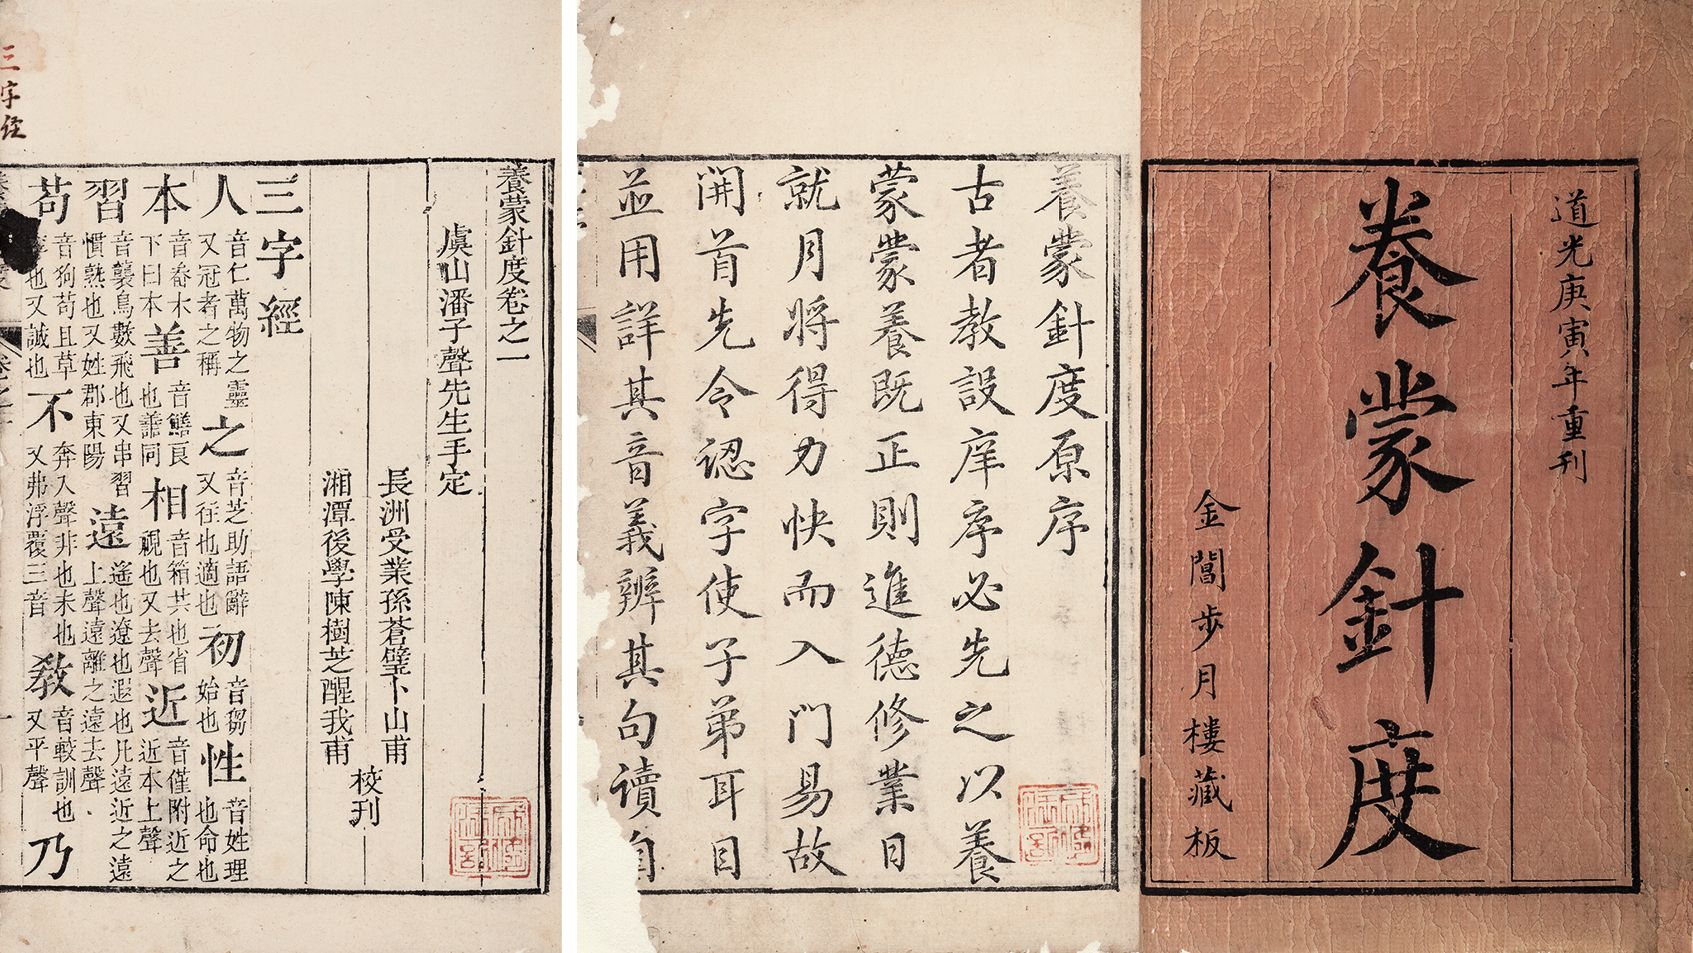 道光庚寅年重刊
養蒙針度
金閶步月樓藏板
養蒙針度原序
古者教設庠序必先之以養
蒙蒙養既正則進德修業日
就月將得力快而入門易故
開首先令認字使子弟耳目
並用詳其音義辨其句讀自
養蒙針度卷之一
虞山潘子聲先生手定
長洲受業孫蒼璧卜山甫
湘潭後學陳樹芝醒我甫
校刊
三字經
人 音仁萬物之靈又冠者之稱 之 音芝助語辭又往也適也 初 音芻始也 性 音姓理也命也
本 音畚木下曰本 善 音鱔良也譱同 相 音箱共也省視也又去聲 近 音僅附近之近本上聲
習 音襲鳥數飛也又串習慣熟也又姓郡東陽 遠 遙也遼也遐也凡遠近之遠上聲遠離之遠去聲
苟 音狗苟且草率也又誠也 不 奔入聲非也未也又弗浮覆三音 教 音較訓也又平聲 乃
三字经